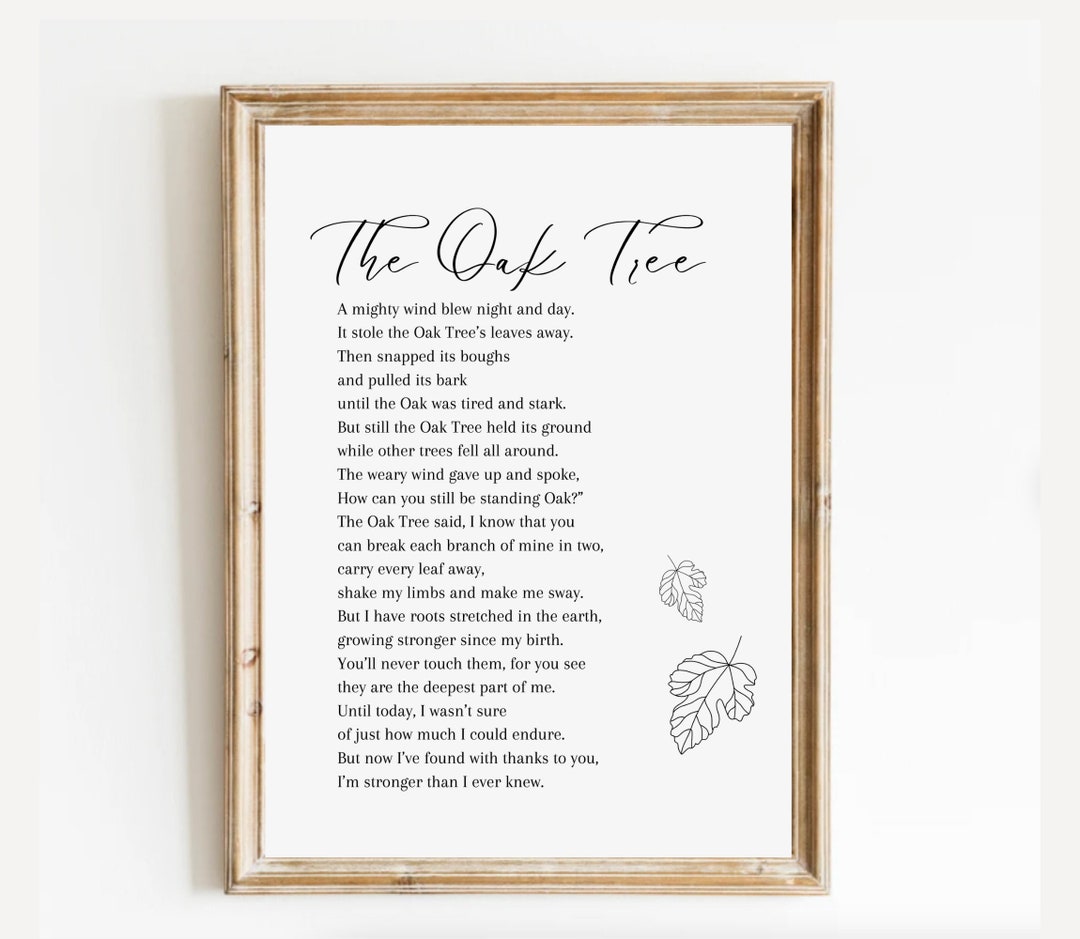 The Oak Tree
A mighty wind blew night and day.
It stole the Oak Tree’s leaves away.
Then snapped its boughs
and pulled its bark
until the Oak was tired and stark.
But still the Oak Tree held its ground
while other trees fell all around.
The weary wind gave up and spoke,
How can you still be standing Oak?”
The Oak Tree said, I know that you
can break each branch of mine in two,
carry every leaf away,
shake my limbs and make me sway.
But I have roots stretched in the earth,
growing stronger since my birth.
You’ll never touch them, for you see
they are the deepest part of me.
Until today, I wasn’t sure
of just how much I could endure.
But now I’ve found with thanks to you,
I’m stronger than I ever knew.